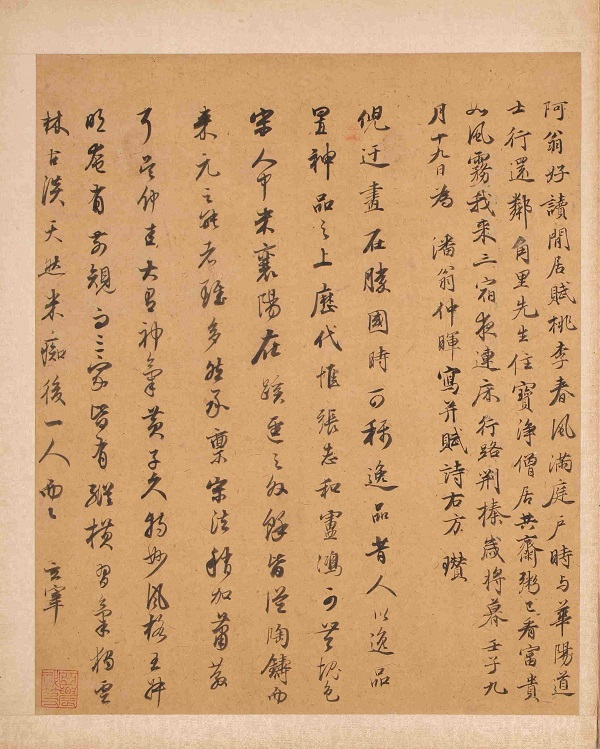 阿翁好讀閒居賦桃李春風滿庭戶時与華陽道
士行還鄰角里先生住寶淨僧居共齋粥已看富貴
如風霧我来三宿夜連床行路荆榛歲將暮壬子九
月十九日為 潘翁仲暉寫并賦詩右方 瓚
倪迂畫在勝國時可稱逸品昔人以逸品
置神品之上歷代惟張志和盧鴻可無愧色
宋人中米襄陽在蹊逕之外餘皆從陶鑄而
来元之能者雖多然承稟宋法稍加蕭散
耳吳仲圭大有神氣黄子久特妙風格王叔
明奄有前規而三家皆有縱横習氣獨雲
林古淡天然米痴後一人而已 玄宰